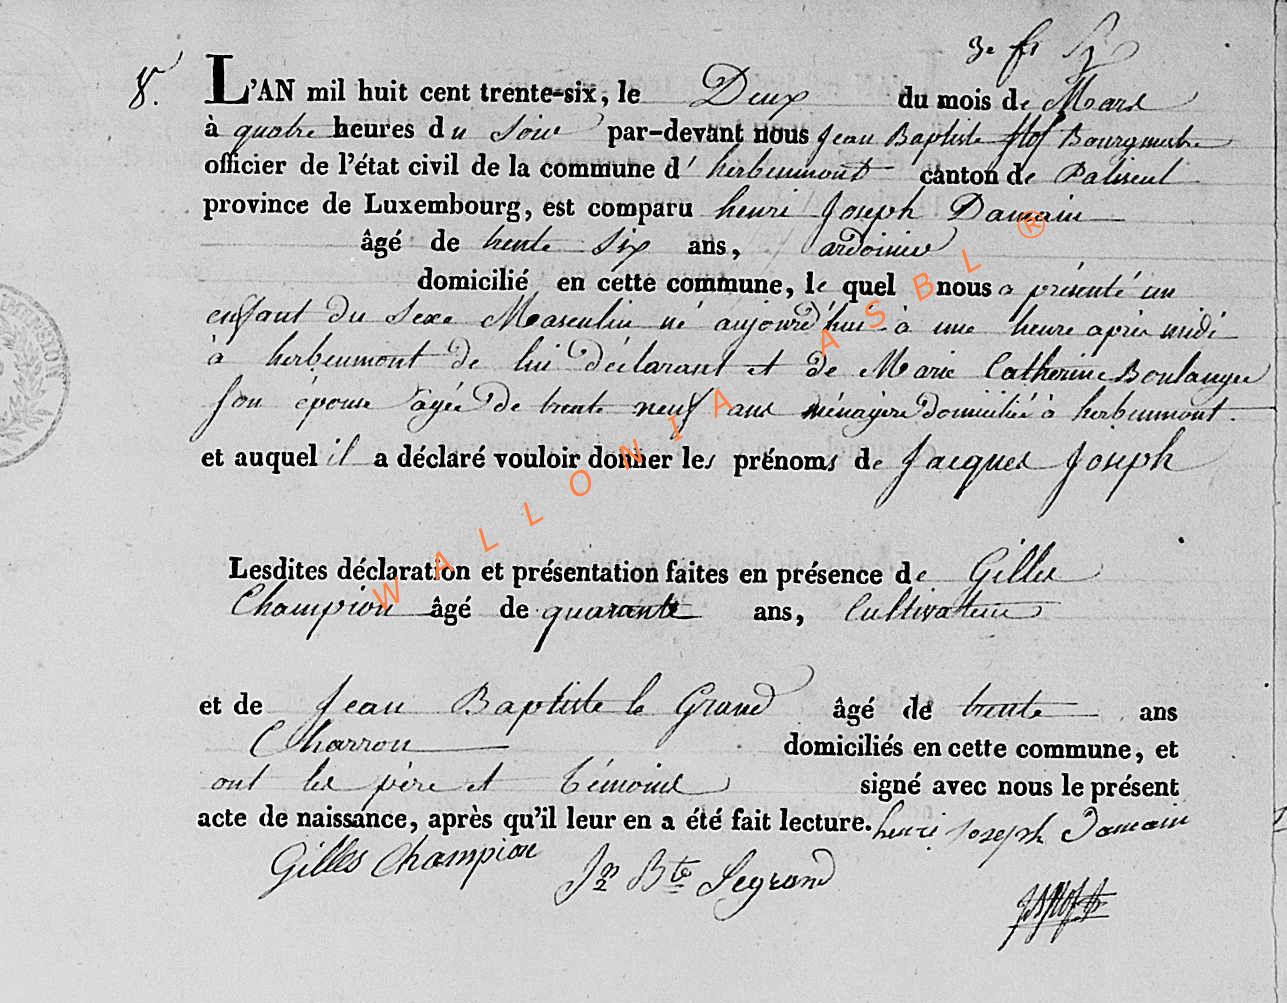 8.
L'AN mil huit cent trente-six, le Deux du mois de Mars
à quatre heures du Soir par-devant nous Jean Baptiste Bourgmestre
officier de l'état civil de la commune d'herbeumont canton de Paliseul
province de Luxembourg, est comparu henri Joseph Damain
âgé de trente Six ans, ardoisier
domicilié en cette commune, le quel nous a présenté un
enfant du Sexe Masculin né aujourd'hui à une heure après midi
à herbeumont de lui déclarant et de Marie Catherine Boulanger
son épouse âgée de trente neuf ans ménagère domiciliée à herbeumont.
et auquel il a déclaré vouloir donner les prénoms de Jacques Joseph
Lesdites déclaration et présentation faites en présence de Gilles
Champion âgé de quarante ans, Cultivateur
et de Jean Baptiste le Grand âgé de trente ans
Charron domiciliés en cette commune, et
ont les père et témoins signé avec nous le présent
acte de naissance, après qu'il leur en a été fait lecture. henri Joseph Damain
Gilles Champion Jn Bte Legrand
WALLONIA ASBL ®